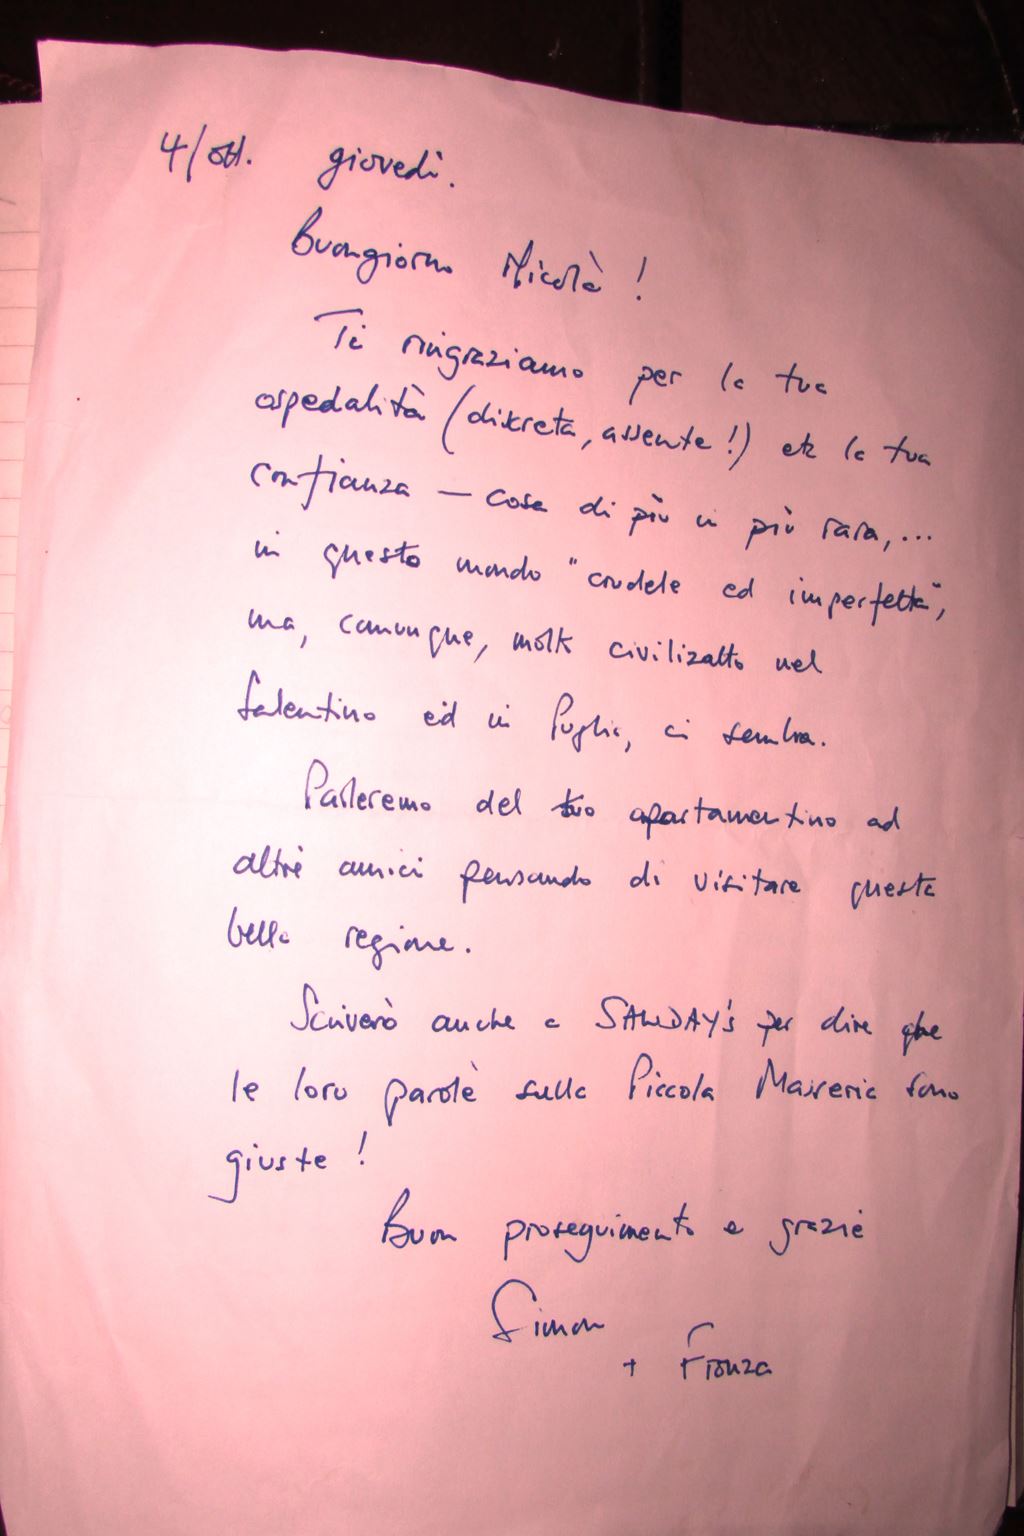 4/ott. giovedì.
Buongiorno Nicolà!
Ti ringraziamo per la tua
ospedalità (diskreta, assente!) ed la tua
confianza — cosa di più in più rara,...
in questo mondo "crudele ed imperfetto",
ma, comunque, molto civilizatto nel
Salentino ed in Puglia, ci sembra.
Parleremo del tuo apartamentino ad
altri amici pensando di visitare questa
bella regione.
Scriverò anche a SAWDAY's per dire que
le loro parole sulla Piccola Masseria sono
giuste!
Buon proseguimento e grazie
Simon
+